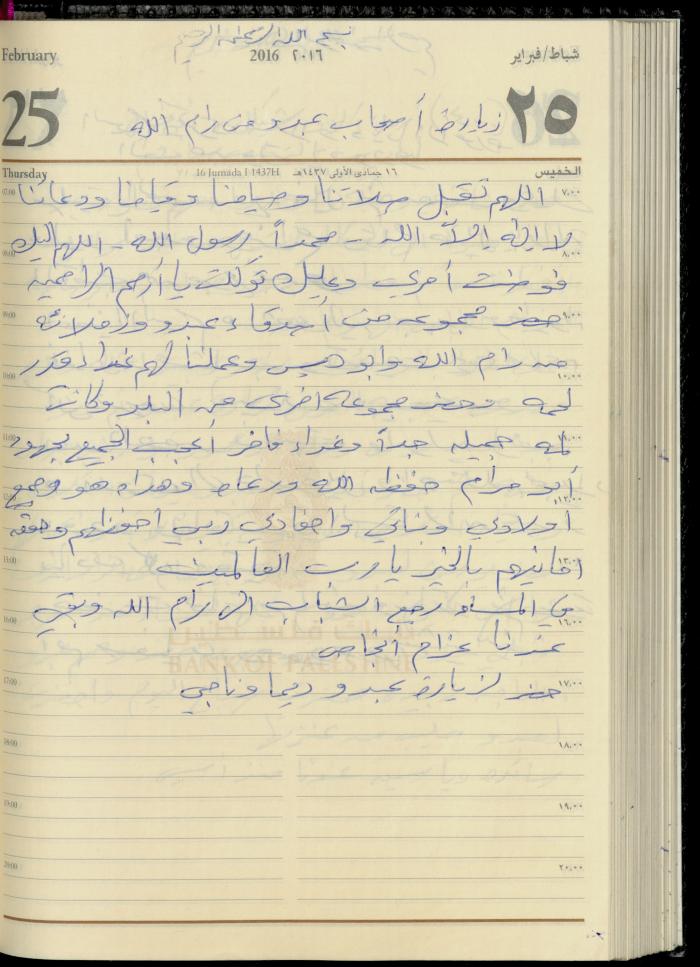 بسم الله الرحمن الرحيم
February 2016 ٢٠١٦ شباط/فبراير
25 زيارة أصحاب عبدو من رام الله ٢٥
Thursday 16 Jumada I 1437H ١٦ جمادى الأولى ١٤٣٧هـ الخميس
07:00 اللهم تقبل صلاتنا وصيامنا وقيامنا ودعائنا ٧،٠٠
لا إله إلا الله - محمداً رسول الله - اللهم إليك
08:00 ٨،٠٠
فوضت أمري وعليك توكلت يا أرحم الراحمين
09:00 حضر مجموعه من أصدقاء عبدو وزملائه ٩،٠٠
من رام الله وابو ديس وعملنا لهم غداء قدر
10:00 ١٠،٠٠
لحمه وحضر مجموعه اخرى من البلد وكانت
11:00 لمه جميله جداً وغداء فاخر أعجب الجميع بجهود ١١،٠٠
أبو مرام حفظه الله ورعاه وهداه هو وجميع
12:00 ١٢،٠٠
أولادي وبناتي واحفادي ربي احفظهم وحقق
13:00 أمانيهم بالخير يا رب العالمين ١٣،٠٠
في المساء رجع الشباب الى رام الله وبقي
16:00 ١٦،٠٠
عندنا عزام
BANK OF PALESTINE
17:00 حضر لزيارة عبدو ديما وناجي ١٧،٠٠
18:00 ١٨،٠٠
19:00 ١٩،٠٠
20:00 ٢٠،٠٠